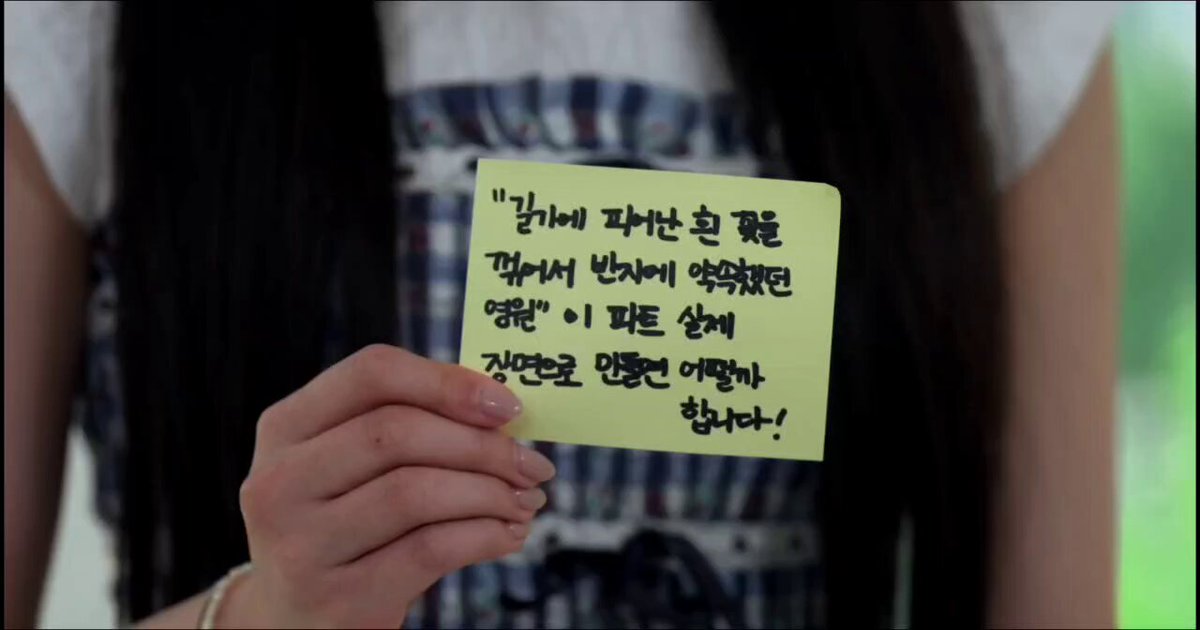 "길가에 피어난 흰 꽃을
꺾어서 반지에 약속했던
영원" 이 파트 실제
장면으로 만들면 어떨까
합니다!